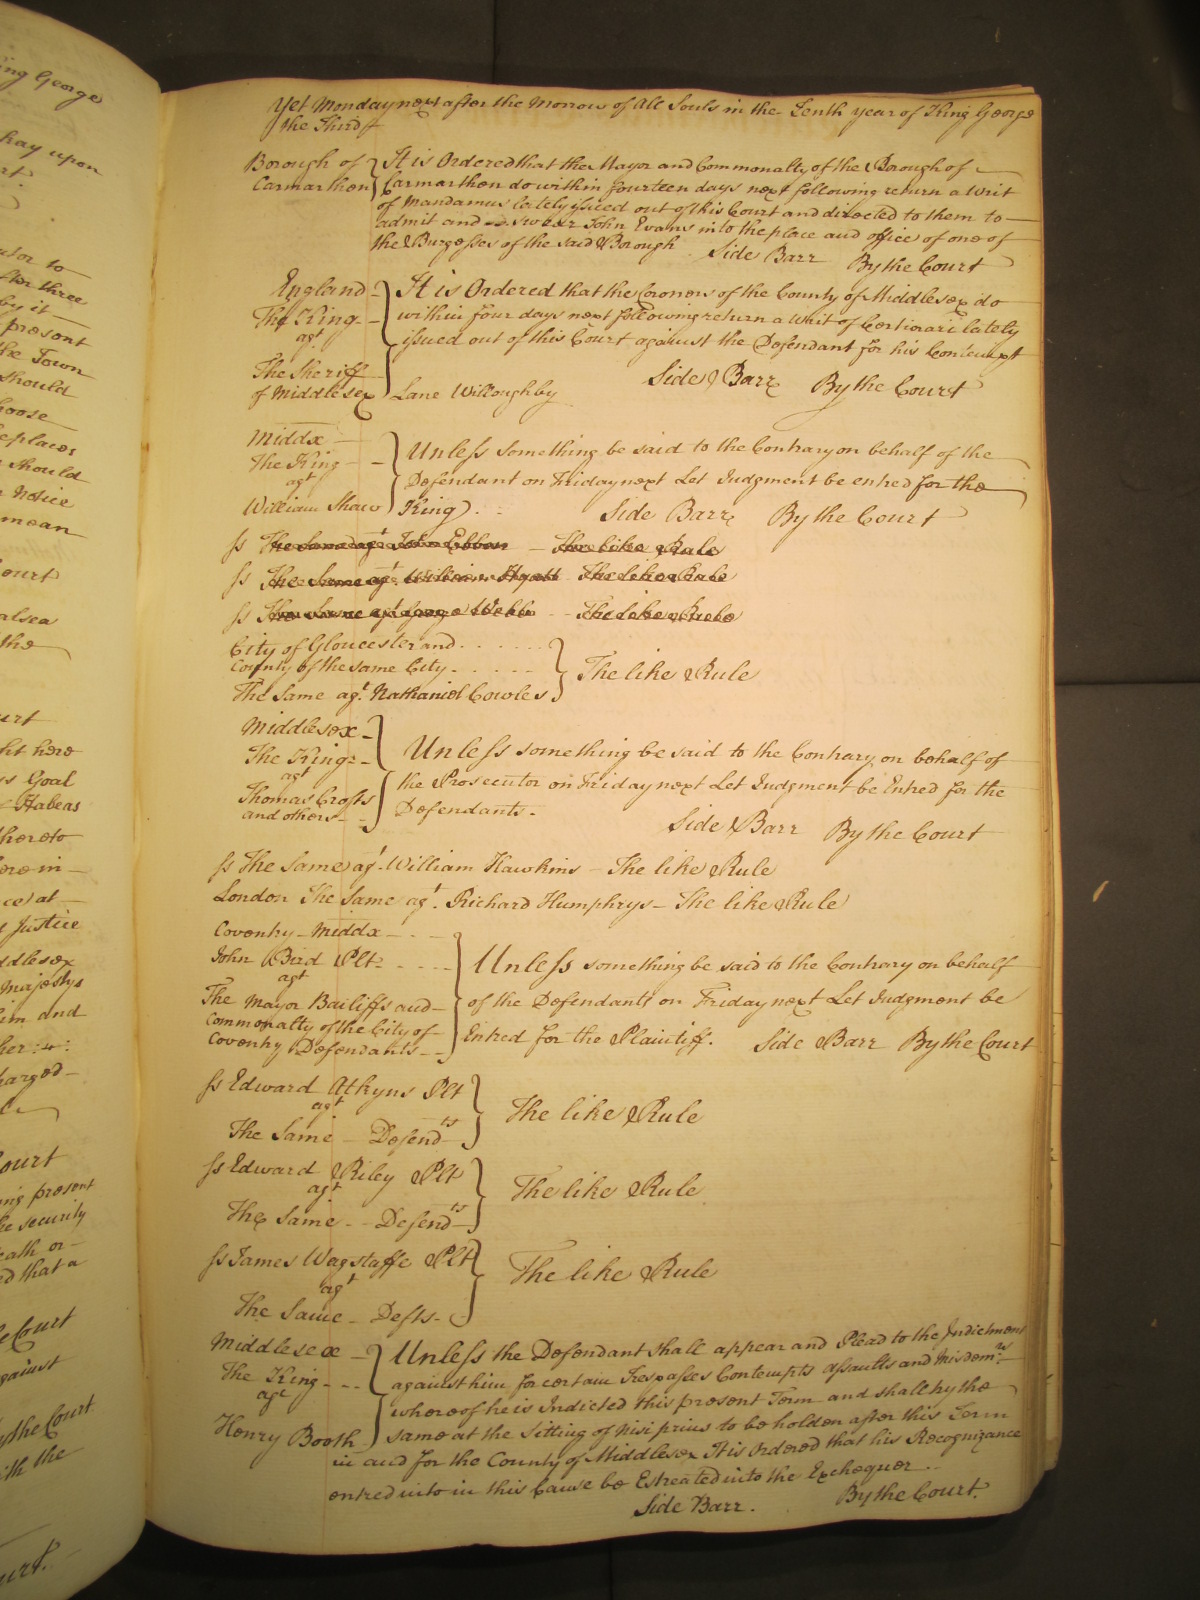 Yet Monday next after the Morrow of All Souls in the Tenth year of King George
the Third
Borough of Carmarthen } It is Ordered that the Mayor and Commonalty of the Borough of
Carmarthen do within fourteen days next following return a Writ
of Mandamus lately issued out of this Court and directed to them to
admit and swear John Evans into the place and office of one of
the Burgesses of the said Borough Side Barr By the Court
England
The King
agt
The Sheriff
of Middlesex
It is Ordered that the Coroners of the County of Middlesex do
within four days next following return a Writ of Certiorari lately
issued out of this Court against the Defendant for his Contempt
Side Barr By the Court
Lane Willoughby
Middx
The King
agt
William Shaw
Unless something be said to the Contrary on behalf of the
Defendant on Friday next Let Judgment be entred for the
King Side Barr By the Court
ss The Same agt John Ebben The like Rule
ss The Same agt William Hyatt The like Rule
ss The Same agt George Webb The like Rule
City of Gloucester and
County of the same City
The Same agt Nathaniel Cowles
The like Rule
Middlesex
The King
agt
Thomas Crofts
and others
Unless something be said to the Contrary on behalf of
the Prosecutor on Friday next Let Judgment be Entred for the
Defendants.
Side Barr By the Court
ss The Same agt William Hawkins - The like Rule
London The Same agt Richard Humphrys - The like Rule
Coventry - Middx
John Bird Plt
agt
The Mayor Bailiffs and
Commonalty of the City of
Coventry Defendants
Unless something be said to the Contrary on behalf
of the Defendants on Friday next Let Judgment be
Entred for the Plaintiff. Side Barr By the Court
ss Edward Atkyns Plt
agt
The Same - Defendts
The like Rule
ss Edward Riley Plt
agt
The Same - Defendts
The like Rule
ss James Wagstaffe Plt
agt
The Same - Defts
The like Rule
Middlesex
The King
agt
Henry Booth
Unless the Defendant shall appear and Plead to the Indictment
against him for certain Trespasses Contempts assaults and Misdemrs
whereof he is Indicted this present Term and shall try the
same at the Sitting of Nisi prius to be holden after this Term
in and for the County of Middlesex It is Ordered that his Recognizance
entred into in this Cause be Estreated into the Exchequer
Side Barr. By the Court.